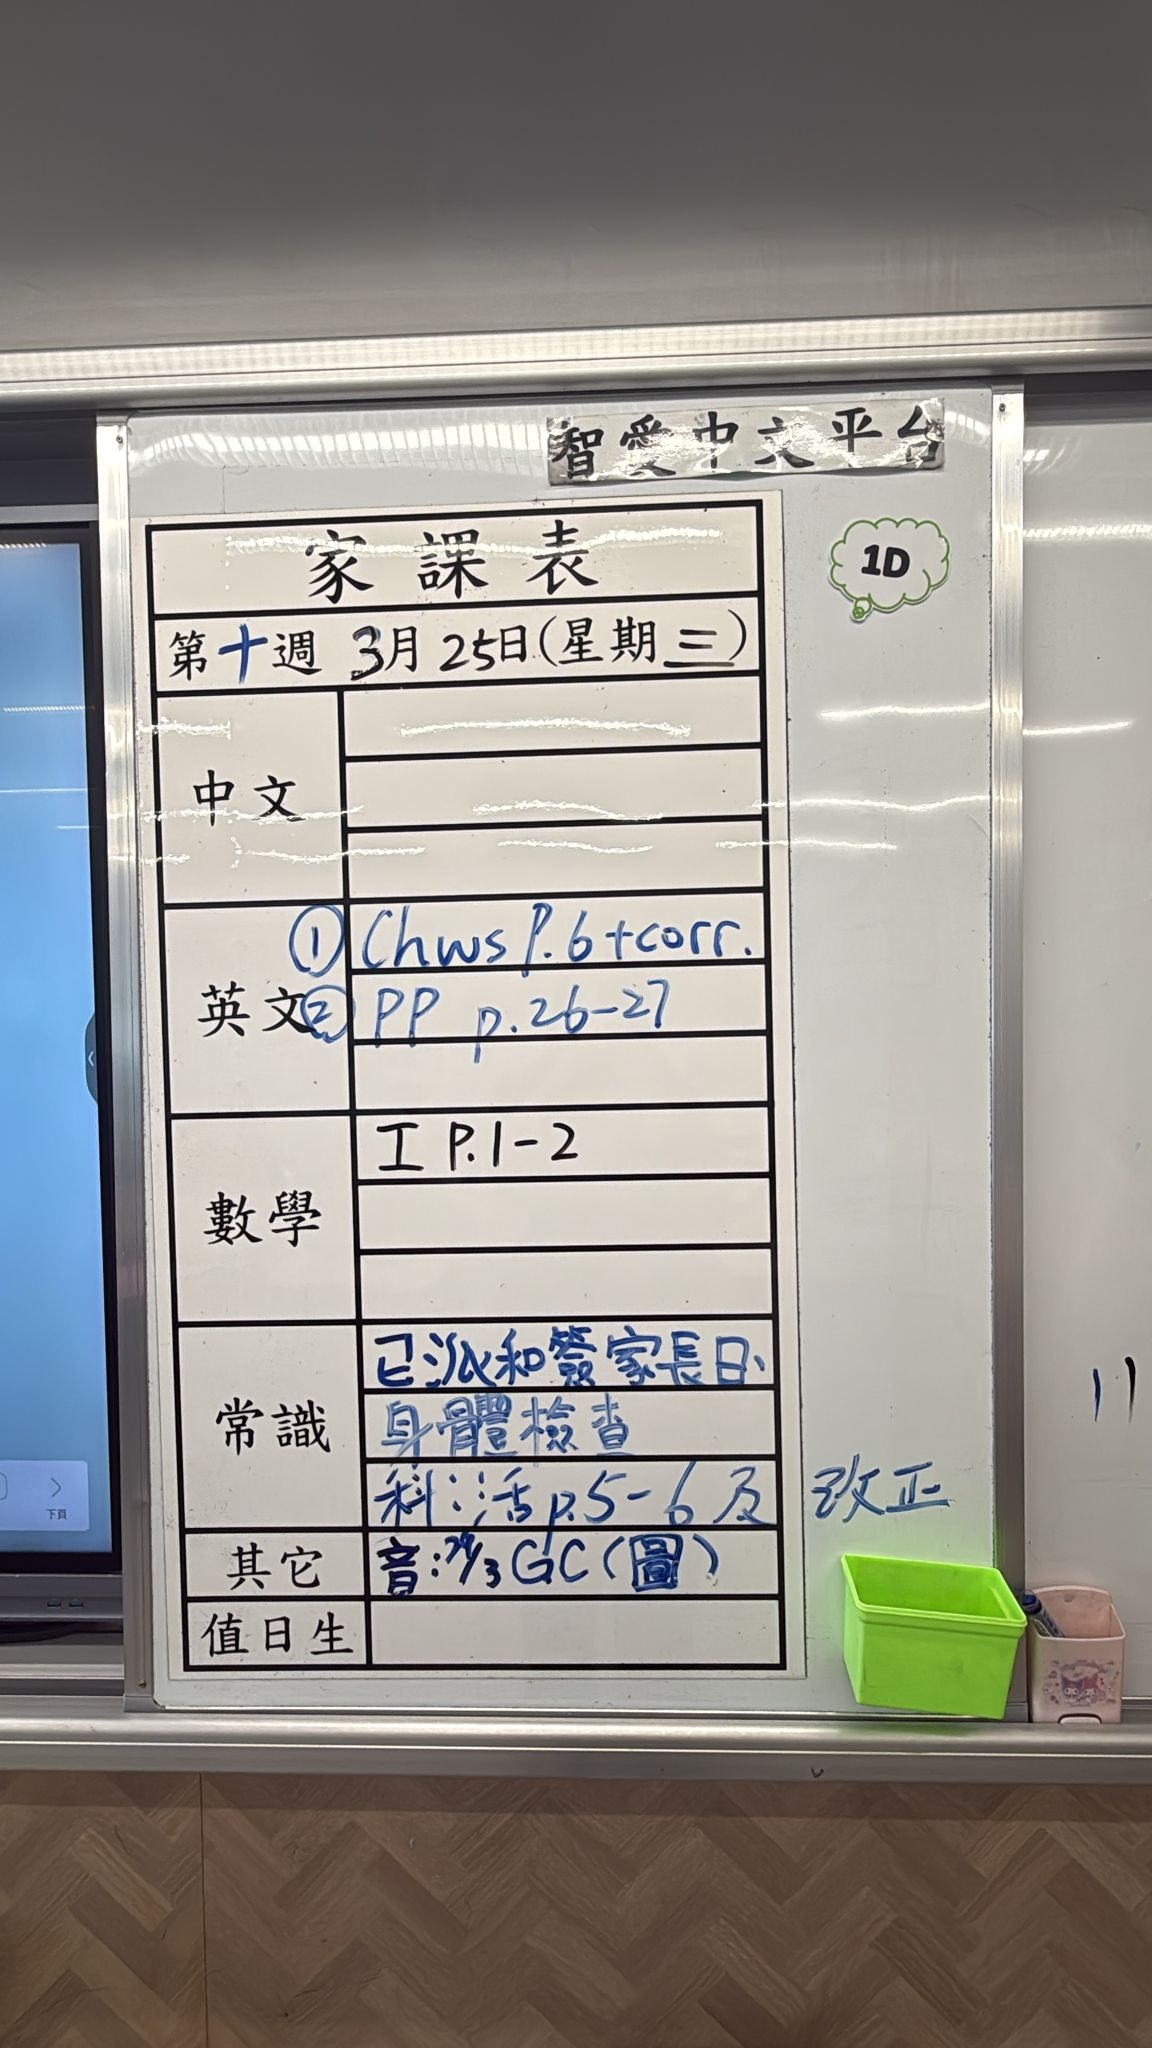 智愛中文平台
1D
家課表
第十週 3月25日(星期三)
中文
英文
① Chws P.6+corr.
② PP p.26-27
數學
工 P.1-2
常識
已派和簽家長日、
身體檢查
科:活p.5-6及 改正
其它
音: GC(圖)
值日生
下頁